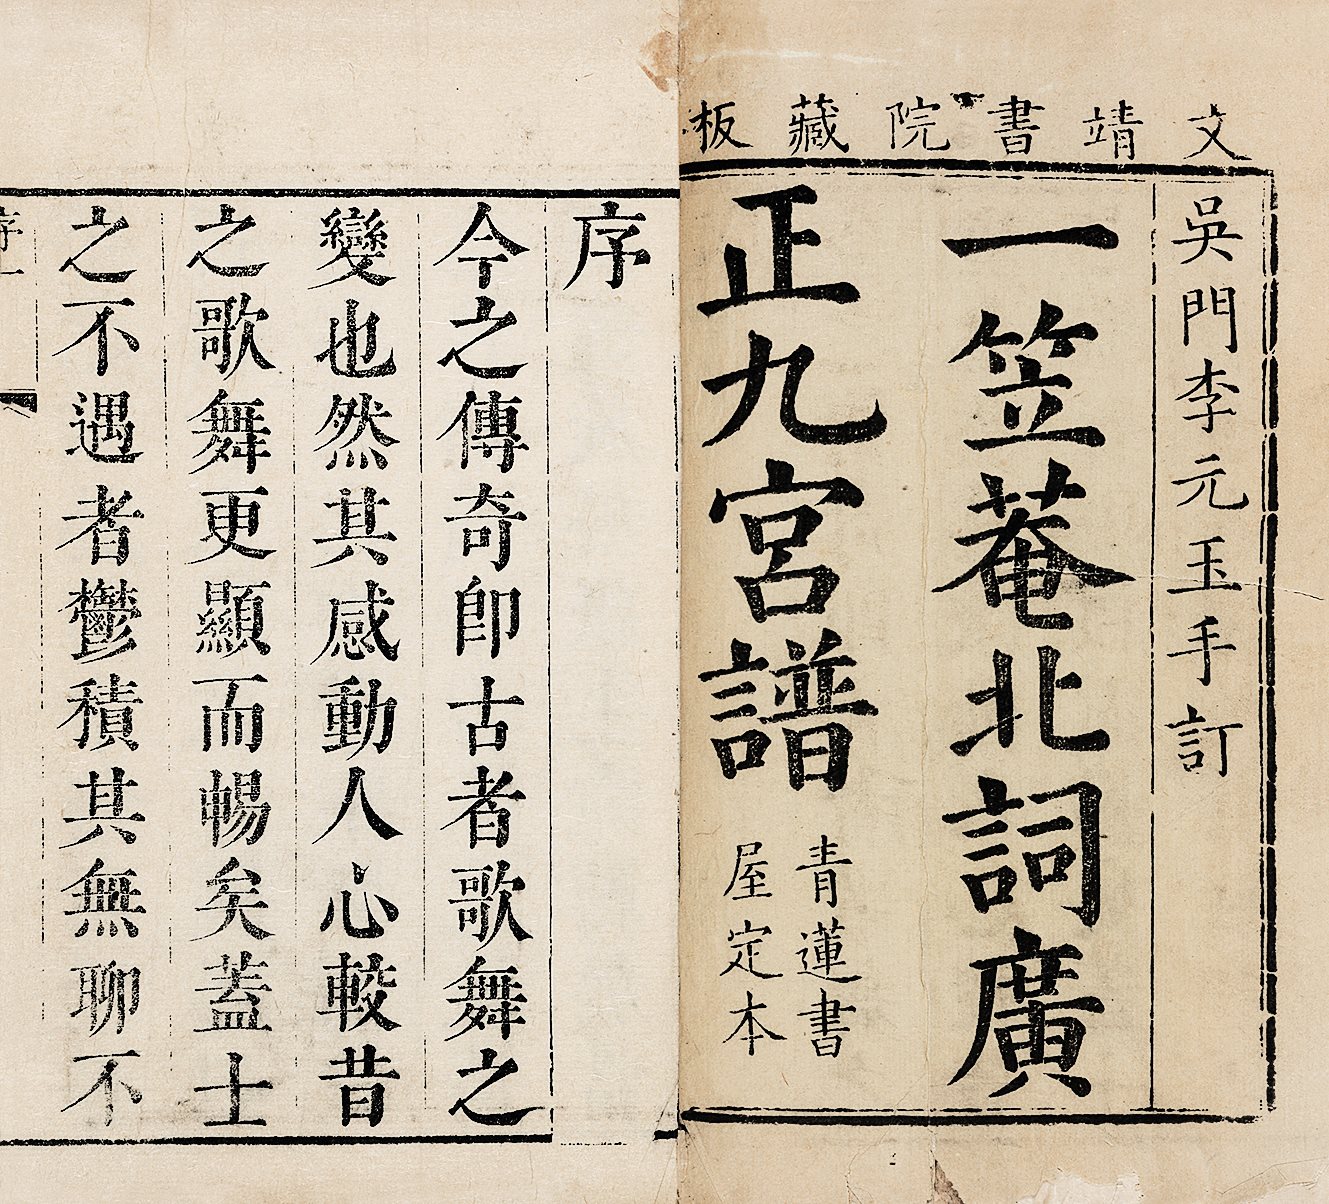 文靖書院藏板
吳門李元玉手訂
一笠菴北詞廣
正九宮譜
青蓮書
屋定本
序
今之傳奇即古者歌舞之
變也然其感動人心較昔
之歌舞更顯而暢矣蓋士
之不遇者鬱積其無聊不
序一